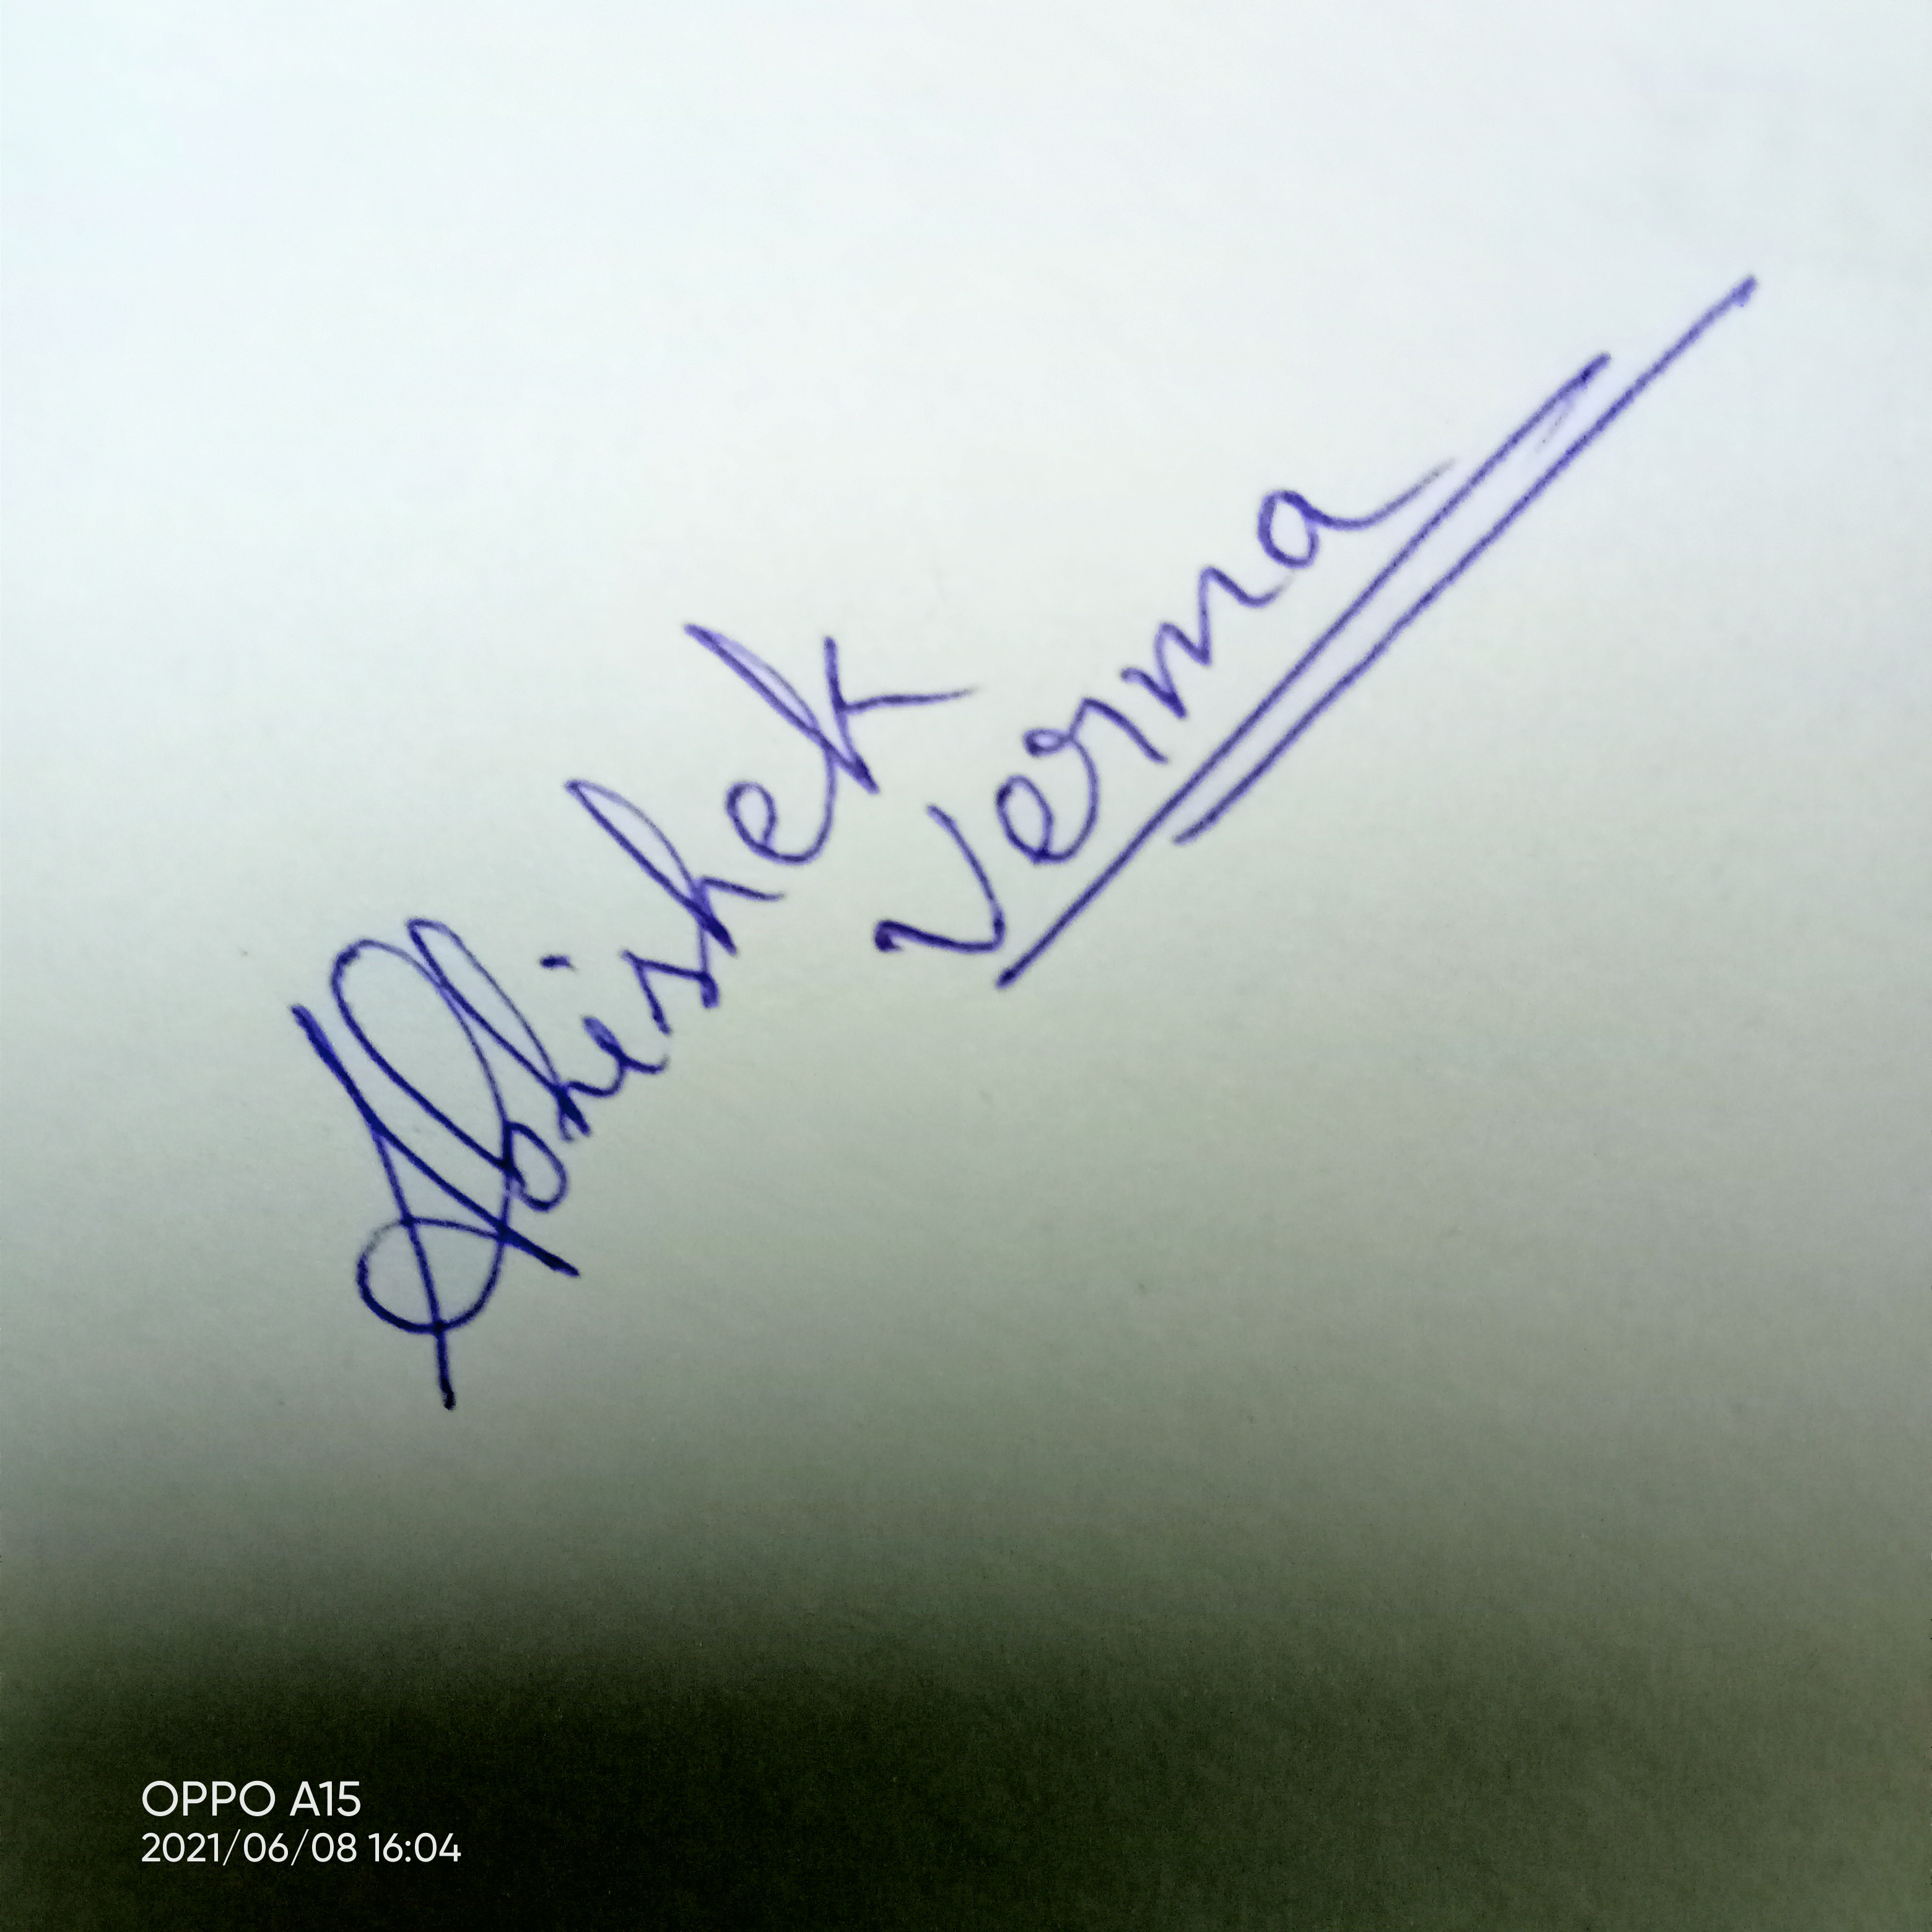 Abhishek
Verma
OPPO A15
2021/06/08 16:04